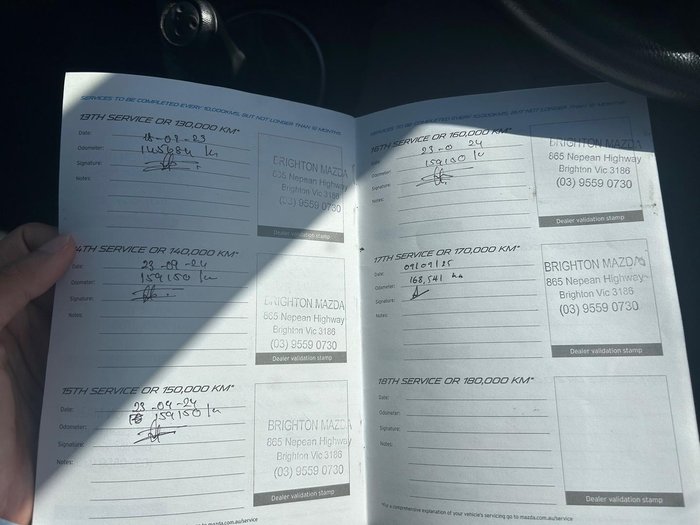 SERVICES TO BE COMPLETED EVERY 10,000KMS, BUT NOT LONGER THAN 12 MONTHS
13TH SERVICE OR 130,000 KM*
Date: 18-02-23
Odometer: 145684 km
Signature:
Notes:
BRIGHTON MAZDA
865 Nepean Highway
Brighton Vic 3186
(03) 9559 0730
Dealer validation stamp
14TH SERVICE OR 140,000 KM*
Date: 23-09-24
Odometer: 159150 km
Signature:
Notes:
BRIGHTON MAZDA
865 Nepean Highway
Brighton Vic 3186
(03) 9559 0730
Dealer validation stamp
15TH SERVICE OR 150,000 KM*
Date: 23-04-24
Odometer: 159150 km
Signature:
Notes:
BRIGHTON MAZDA
865 Nepean Highway
Brighton Vic 3186
(03) 9559 0730
Dealer validation stamp
SERVICES TO BE COMPLETED EVERY 10,000KMS, BUT NOT LONGER THAN 12 MONTHS
16TH SERVICE OR 160,000 KM*
Date: 23-0 24
Odometer: 159150 km
Signature:
Notes:
BRIGHTON MAZDA
865 Nepean Highway
Brighton Vic 3186
(03) 9559 0730
Dealer validation stamp
17TH SERVICE OR 170,000 KM*
Date: 09/09/25
Odometer: 168,541 km
Signature:
Notes:
BRIGHTON MAZDA
865 Nepean Highway
Brighton Vic 3186
(03) 9559 0730
Dealer validation stamp
18TH SERVICE OR 180,000 KM*
Date:
Odometer:
Signature:
Notes:
Dealer validation stamp
*For a comprehensive explanation of your vehicle's servicing go to mazda.com.au/service